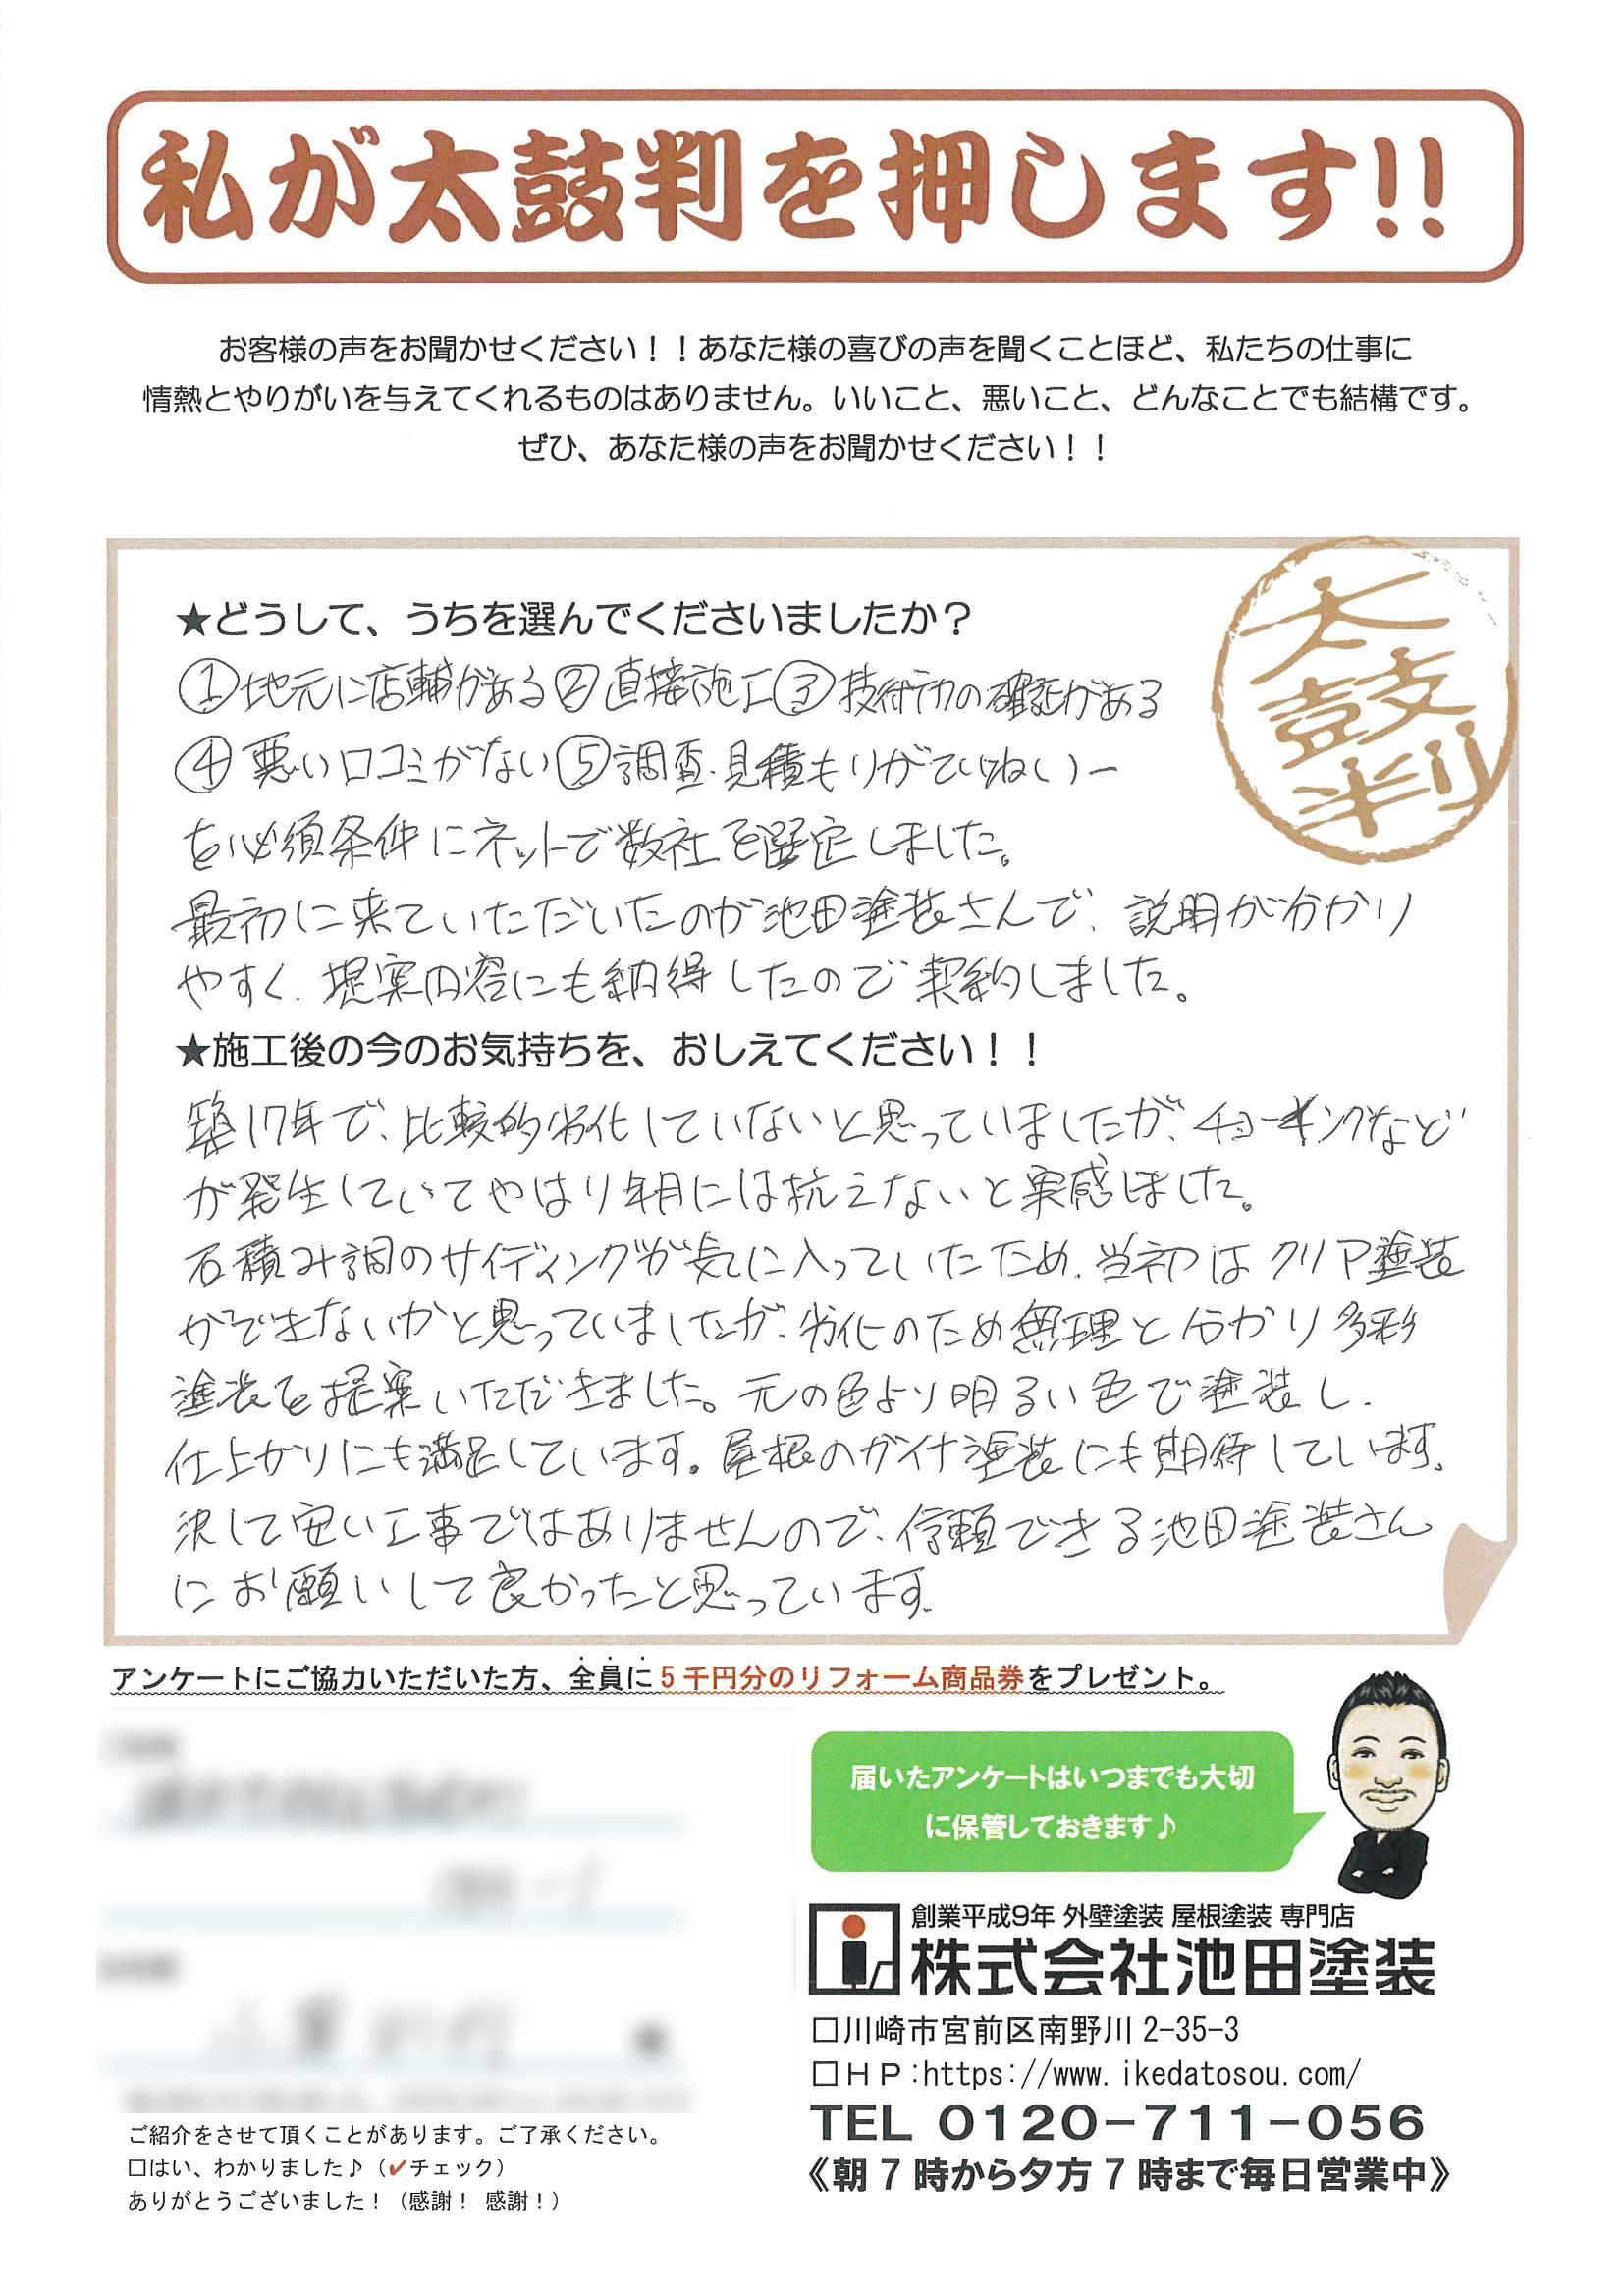 私が太鼓判を押します!!
お客様の声をお聞かせください！！あなた様の喜びの声を聞くことほど、私たちの仕事に
情熱とやりがいを与えてくれるものはありません。いいこと、悪いこと、どんなことでも結構です。
ぜひ、あなた様の声をお聞かせください！！
太鼓判
★どうして、うちを選んでくださいましたか？
①地元に店舗がある②直接施工③技術力の確証がある
④悪い口コミがない⑤調査・見積もりがていねいー
を必須条件にネットで数社を選定しました。
最初に来ていただいたのが池田塗装さんで、説明が分かり
やすく、提案内容にも納得したので契約しました。
★施工後の今のお気持ちを、おしえてください！！
築17年で、比較的劣化していないと思っていましたが、チョーキングなど
が発生していてやはり年月には抗えないと実感しました。
石積み調のサイディングが気に入っていたため、当初はクリア塗装
ができないかと思っていましたが、劣化のため無理と分かり多彩
塗装を提案いただきました。元の色より明るい色で塗装し、
仕上がりにも満足しています。屋根のガイナ塗装にも期待しています。
決して安い工事ではありませんので、信頼できる池田塗装さん
にお願いして良かったと思っています。
アンケートにご協力いただいた方、全員に5千円分のリフォーム商品券をプレゼント。
届いたアンケートはいつまでも大切
に保管しておきます♪
創業平成9年 外壁塗装 屋根塗装 専門店
株式会社池田塗装
□川崎市宮前区南野川2-35-3
□ＨＰ:https://www.ikedatosou.com/
TEL 0120-711-056
《朝7時から夕方7時まで毎日営業中》
ご紹介をさせて頂くことがあります。ご了承ください。
□はい、わかりました♪（✔チェック）
ありがとうございました！（感謝！ 感謝！）